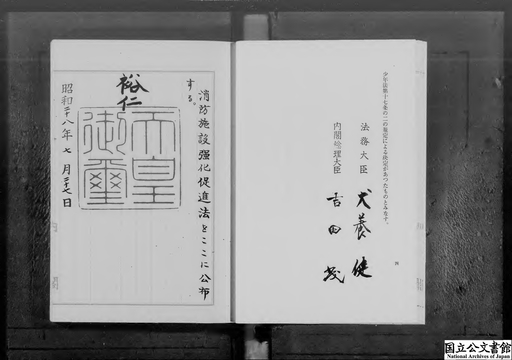 少年法第十七条の二の規定による决定があつたものとみなす。
法務大臣
犬養健
内閣総理大臣
吉田茂
消防施設強化促進法をここに公布
する。
裕仁
天皇
御璽
昭和二十八年七月二十七日
国立公文書館
National Archives of Japan